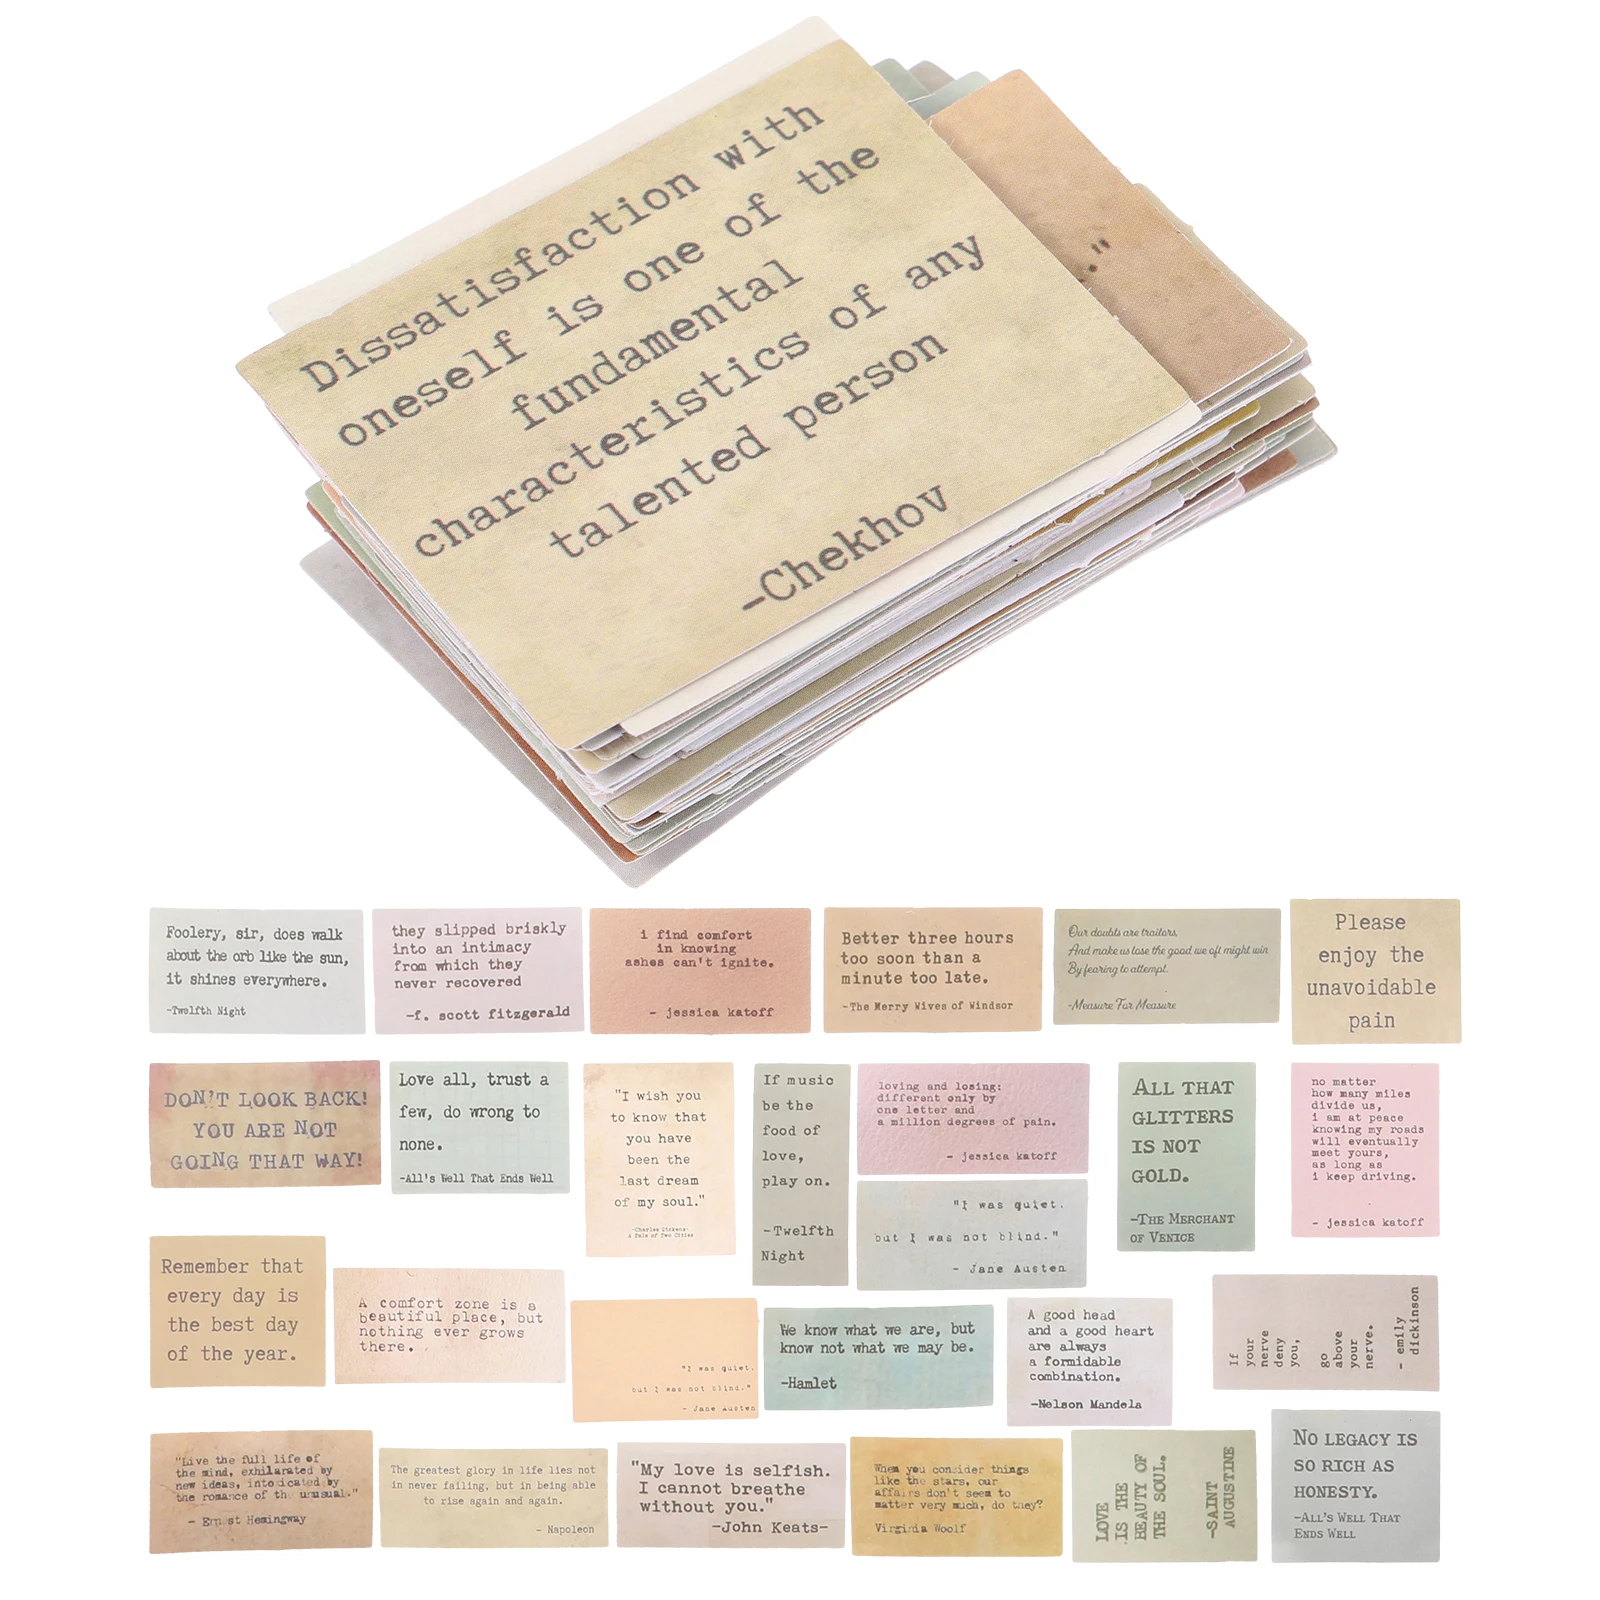 Dissatisfaction with
oneself is one of the
fundamental
characteristics of any
talented person
-Chekhov
."
Foolery, sir, does walk
about the orb like the sun,
it shines everywhere.
-Twelfth Night
they slipped briskly
into an intimacy
from which they
never recovered
-f. scott fitzgerald
i find comfort
in knowing
ashes can't ignite.
- jessica katoff
Better three hours
too soon than a
minute too late.
-The Merry Wives of Windsor
Our doubts are traitors,
And make us lose the good we oft might win
By fearing to attempt.
-Measure For Measure
Please
enjoy the
unavoidable
pain
DON'T LOOK BACK!
YOU ARE NOT
GOING THAT WAY!
Love all, trust a
few, do wrong to
none.
-All's Well That Ends Well
"I wish you
to know that
you have
been the
last dream
of my soul."
-Charles Dickens-
A Tale of Two Cities
If music
be the
food of
love,
play on.
-Twelfth
Night
loving and losing:
different only by
one letter and
a million degrees of pain.
- jessica katoff
"I was quiet,
but I was not blind."
- Jane Austen
ALL THAT
GLITTERS
IS NOT
GOLD.
-THE MERCHANT
OF VENICE
no matter
how many miles
divide us,
i am at peace
knowing my roads
will eventually
meet yours,
as long as
i keep driving.
- jessica katoff
Remember that
every day is
the best day
of the year.
A comfort zone is a
beautiful place, but
nothing ever grows
there.
"I was quiet,
but I was not blind."
- Jane Austen
We know what we are, but
know not what we may be.
-Hamlet
A good head
and a good heart
are always
a formidable
combination.
-Nelson Mandela
If
your
nerve
deny
you,
go
above
your
nerve.
- emily
dickinson
"Live the full life of
the mind, exhilarated by
new ideas, intoxicated by
the romance of the unusual."
- Ernest Hemingway
The greatest glory in life lies not
in never failing, but in being able
to rise again and again.
- Napoleon
"My love is selfish.
I cannot breathe
without you."
-John Keats-
When you consider things
like the stars, our
affairs don't seem to
matter very much, do they?
Virginia Woolf
LOVE
IS THE
BEAUTY OF
THE SOUL.
-SAINT
AUGUSTINE
NO LEGACY IS
SO RICH AS
HONESTY.
-ALL'S WELL THAT
ENDS WELL